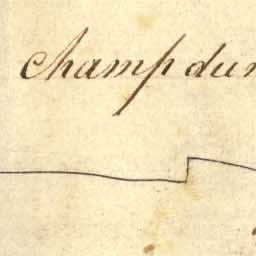 champ du